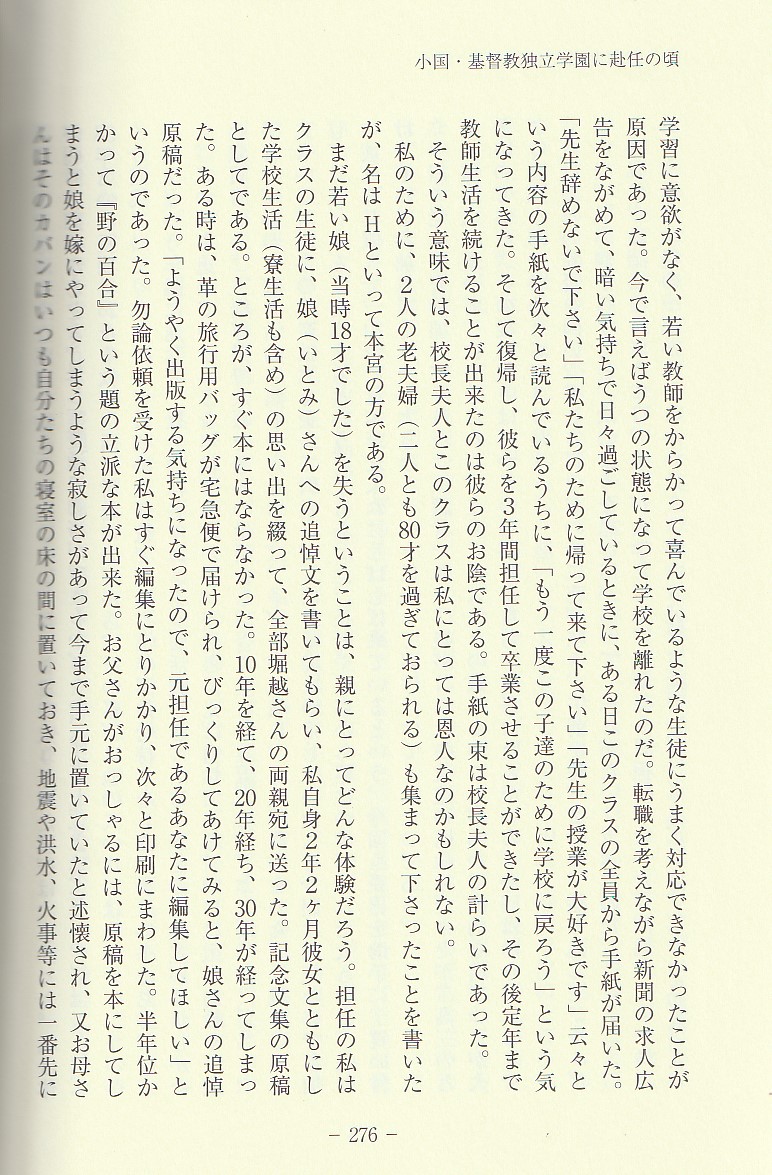 小国・基督教独立学園に赴任の頃
学習に意欲がなく、若い教師をからかって喜んでいるような生徒にうまく対応できなかったことが
原因であった。今で言えばうつの状態になって学校を離れたのだ。転職を考えながら新聞の求人広
告をながめて、暗い気持ちで日々過ごしているときに、ある日このクラスの全員から手紙が届いた。
「先生辞めないで下さい」「私たちのために帰って来て下さい」「先生の授業が大好きです」云々と
いう内容の手紙を次々と読んでいるうちに、「もう一度この子達のために学校に戻ろう」という気
になってきた。そして復帰し、彼らを3年間担任して卒業させることができたし、その後定年まで
教師生活を続けることが出来たのは彼らのお陰である。手紙の束は校長夫人の計らいであった。
そういう意味では、校長夫人とこのクラスは私にとっては恩人なのかもしれない。
私のために、2人の老夫婦（二人とも80才を過ぎておられる）も集まって下さったことを書いた
が、名はHといって本宮の方である。
まだ若い娘（当時18才でした）を失うということは、親にとってどんな体験だろう。担任の私は
クラスの生徒に、娘（いとみ）さんへの追悼文を書いてもらい、私自身2年2ヶ月彼女とともにし
た学校生活（寮生活も含め）の思い出を綴って、全部堀越さんの両親宛に送った。記念文集の原稿
としてである。ところが、すぐ本にはならなかった。10年を経て、20年経ち、30年が経ってしまっ
た。ある時は、革の旅行用バッグが宅急便で届けられ、びっくりしてあけてみると、娘さんの追悼
原稿だった。「ようやく出版する気持ちになったので、元担任であるあなたに編集してほしい」と
いうのであった。勿論依頼を受けた私はすぐ編集にとりかかり、次々と印刷にまわした。半年位か
かって『野の百合』という題の立派な本が出来た。お父さんがおっしゃるには、原稿を本にしてし
まうと娘を嫁にやってしまうような寂しさがあって今まで手元に置いていたと述懐され、又お母さ
んはそのカバンはいつも自分たちの寝室の床の間に置いておき、地震や洪水、火事等には一番先に
－276－